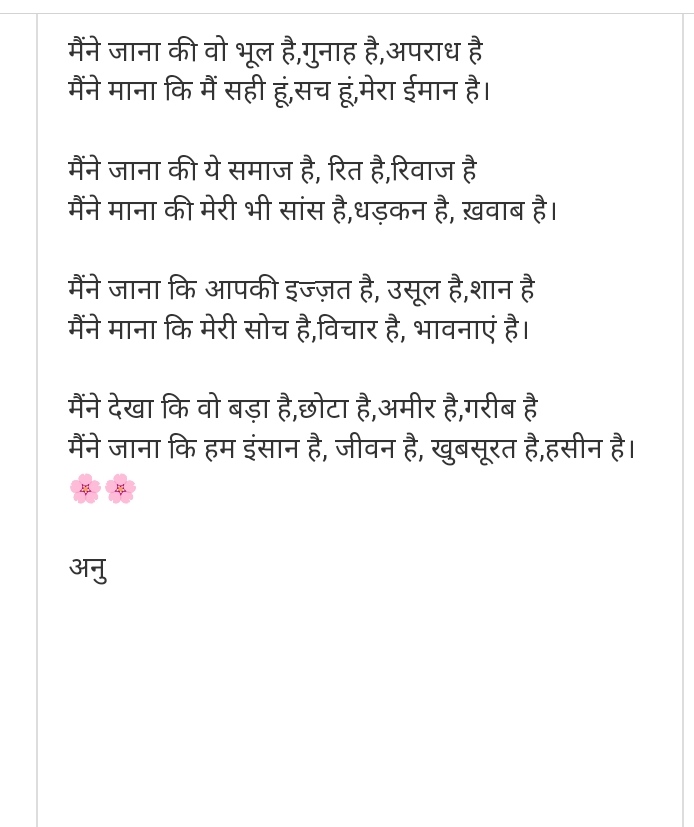 मैंने जाना की वो भूल है,गुनाह है,अपराध है
मैंने माना कि मैं सही हूं,सच हूं,मेरा ईमान है।
मैंने जाना की ये समाज है, रित है,रिवाज है
मैंने माना की मेरी भी सांस है,धड़कन है, ख़वाब है।
मैंने जाना कि आपकी इज्ज़त है, उसूल है,शान है
मैंने माना कि मेरी सोच है,विचार है, भावनाएं है।
मैंने देखा कि वो बड़ा है,छोटा है,अमीर है,गरीब है
मैंने जाना कि हम इंसान है, जीवन है, खुबसूरत है,हसीन है।
🌸🌸
अनु